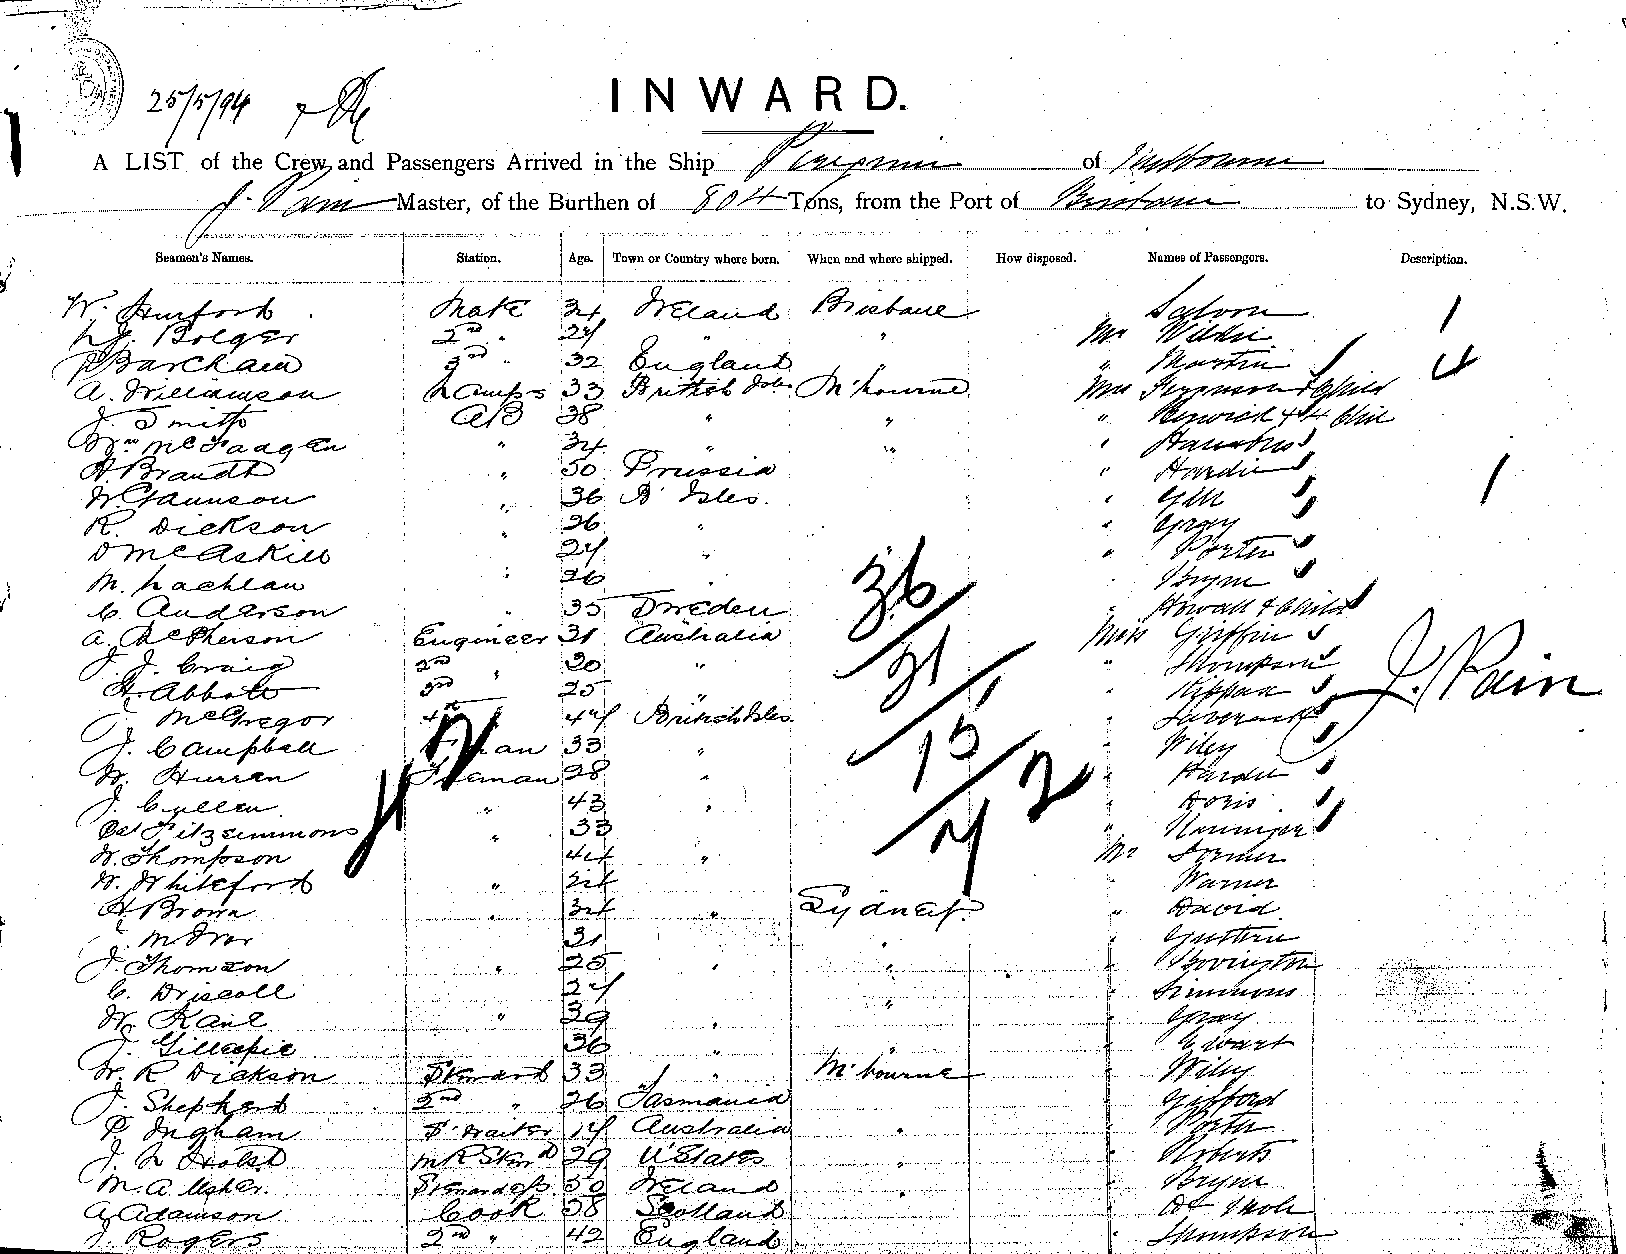 25/5/94
INWARD.
A LIST of the Crew and Passengers Arrived in the Ship of Melbourne
J. Pain Master, of the Burthen of 804 Tons, from the Port of Brisbane to Sydney, N.S.W.
Seamen's Names. Station. Age. Town or Country where born. When and where shipped. How disposed. Names of Passengers. Description.
W. Hurford Mate 34 Ireland Brisbane Saloon 1
Bolger 2nd " 27 " " Mr Wildie
Barcham 3rd " 32 England " " Martin 4
A. Williamson Lamps 33 British Isles M'bourne Mrs Ferguson & Child
J. Smith AB 38 " " " Renwick & 4 Chn
Wm McFadgen " 34 " " "
H. Brandt " 50 Prussia " Hardie
W. Gaunson " 36 B Isles. " Gill 1
R. Dickson " 26 " " Gray
D McAskill 27 " " Porter
M. Lachlan " 26 " Bryne
C. Anderson " 35 Sweden " Howall & Child
A. McPherson Engineer 31 Australia Miss Griffin
J. J. Craig 2nd " 20 " " Thompson
H. Abbott 3rd 25 " "
J. McGregor 4th 47 British Isles. "
J. Campbell 33 " " Wiley
W. Hurran Fireman 28 " " Harden
J. Cullen " 43 " " Doris
Fitzsimmons " 33 "
W. Thompson 44 " Mr
W. Whiteford " 24 Warner
H. Brown " 34 " Sydney. " David
McIvor 31 "
J. Thomson " 25 " " " Bovington
C. Driscoll 27 " Simmons
W. Kane " 39 " Gray
J. Gillespie 36 " " Ewart
W. R Dickson Steward 33 " M'bourne Wiley
J. Shepherd 2nd " 26 Tasmania Gifford
P. Ingham S. Waiter 17 Australia " Porter
J. L Holst 29 U States " Roberts
M. A Usher. Stewardess 50 Ireland " Bryne
A Adamson Cook 38 Scotland
J. Rogers 2nd " 42 England Thompson
36
31
15
7
2
J. Pain